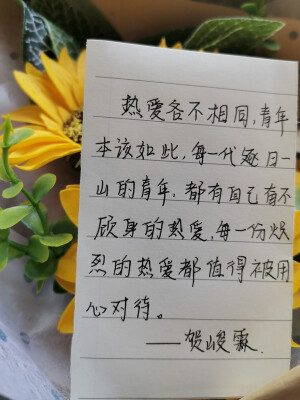 热爱各不相同，青年
本该如此，每一代逐日一
山的青年，都有自己有不
顾身的热爱，每一份爆
烈的热爱都值得被用
心对待。
——贺峻霖.